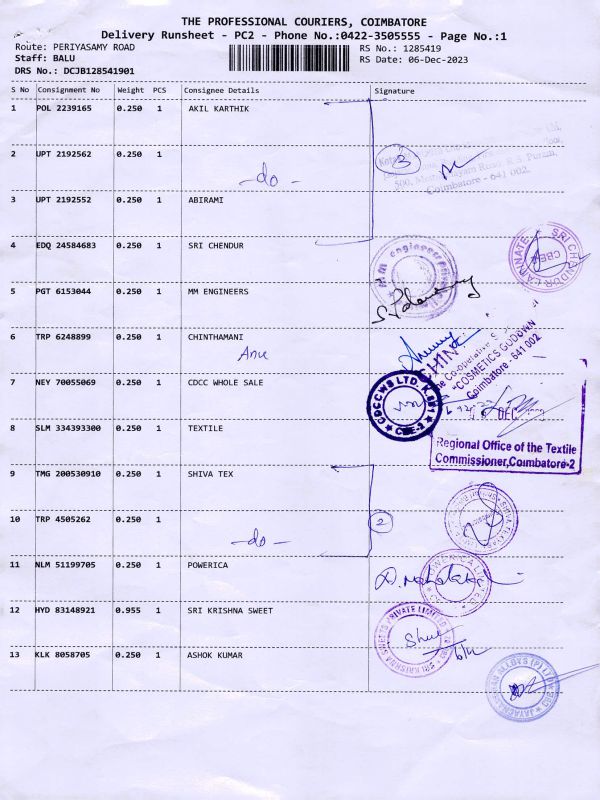 THE PROFESSIONAL COURIERS, COIMBATORE
Delivery Runsheet - PC2 - Phone No.:0422-3505555 - Page No.:1
Route: PERIYASAMY ROAD
RS No.: 1285419
Staff: BALU
RS Date: 06-Dec-2023
DRS No.: DCJB128541901
S No Consignment No Weight PCS Consignee Details Signature
1 POL 2239165 0.250 1 AKIL KARTHIK
2 UPT 2192562 0.250 1
-do-
3
500, R.S. Puram,
Coimbatore - 641 002.
3 UPT 2192552 0.250 1 ABIRAMI
4 EDQ 24584683 0.250 1 SRI CHENDUR
SRI CHANDUR LAMINATE
CBE
5 PGT 6153044 0.250 1 MM ENGINEERS
6 TRP 6248899 0.250 1 CHINTHAMANI
Anu
Co-operative
"COSMETICS GUDOWN
Coimbatore - 641 002
7 NEY 70055069 0.250 1 CDCC WHOLE SALE
CDCCWS LTD.
CBE-2
DEC
8 SLM 334393300 0.250 1 TEXTILE
Regional Office of the Textile
Commissioner,Coimbatore-2
9 TMG 200530910 0.250 1 SHIVA TEX
10 TRP 4505262 0.250 1
2
-do-
11 NLM 51199705 0.250 1 POWERICA
POWERICA LIMITED
12 HYD 83148921 0.955 1 SRI KRISHNA SWEET
SRI KRISHNA SWEETS PRIVATE LIMITED
13 KLK 8058705 0.250 1 ASHOK KUMAR
ALLOYS (P) LTD